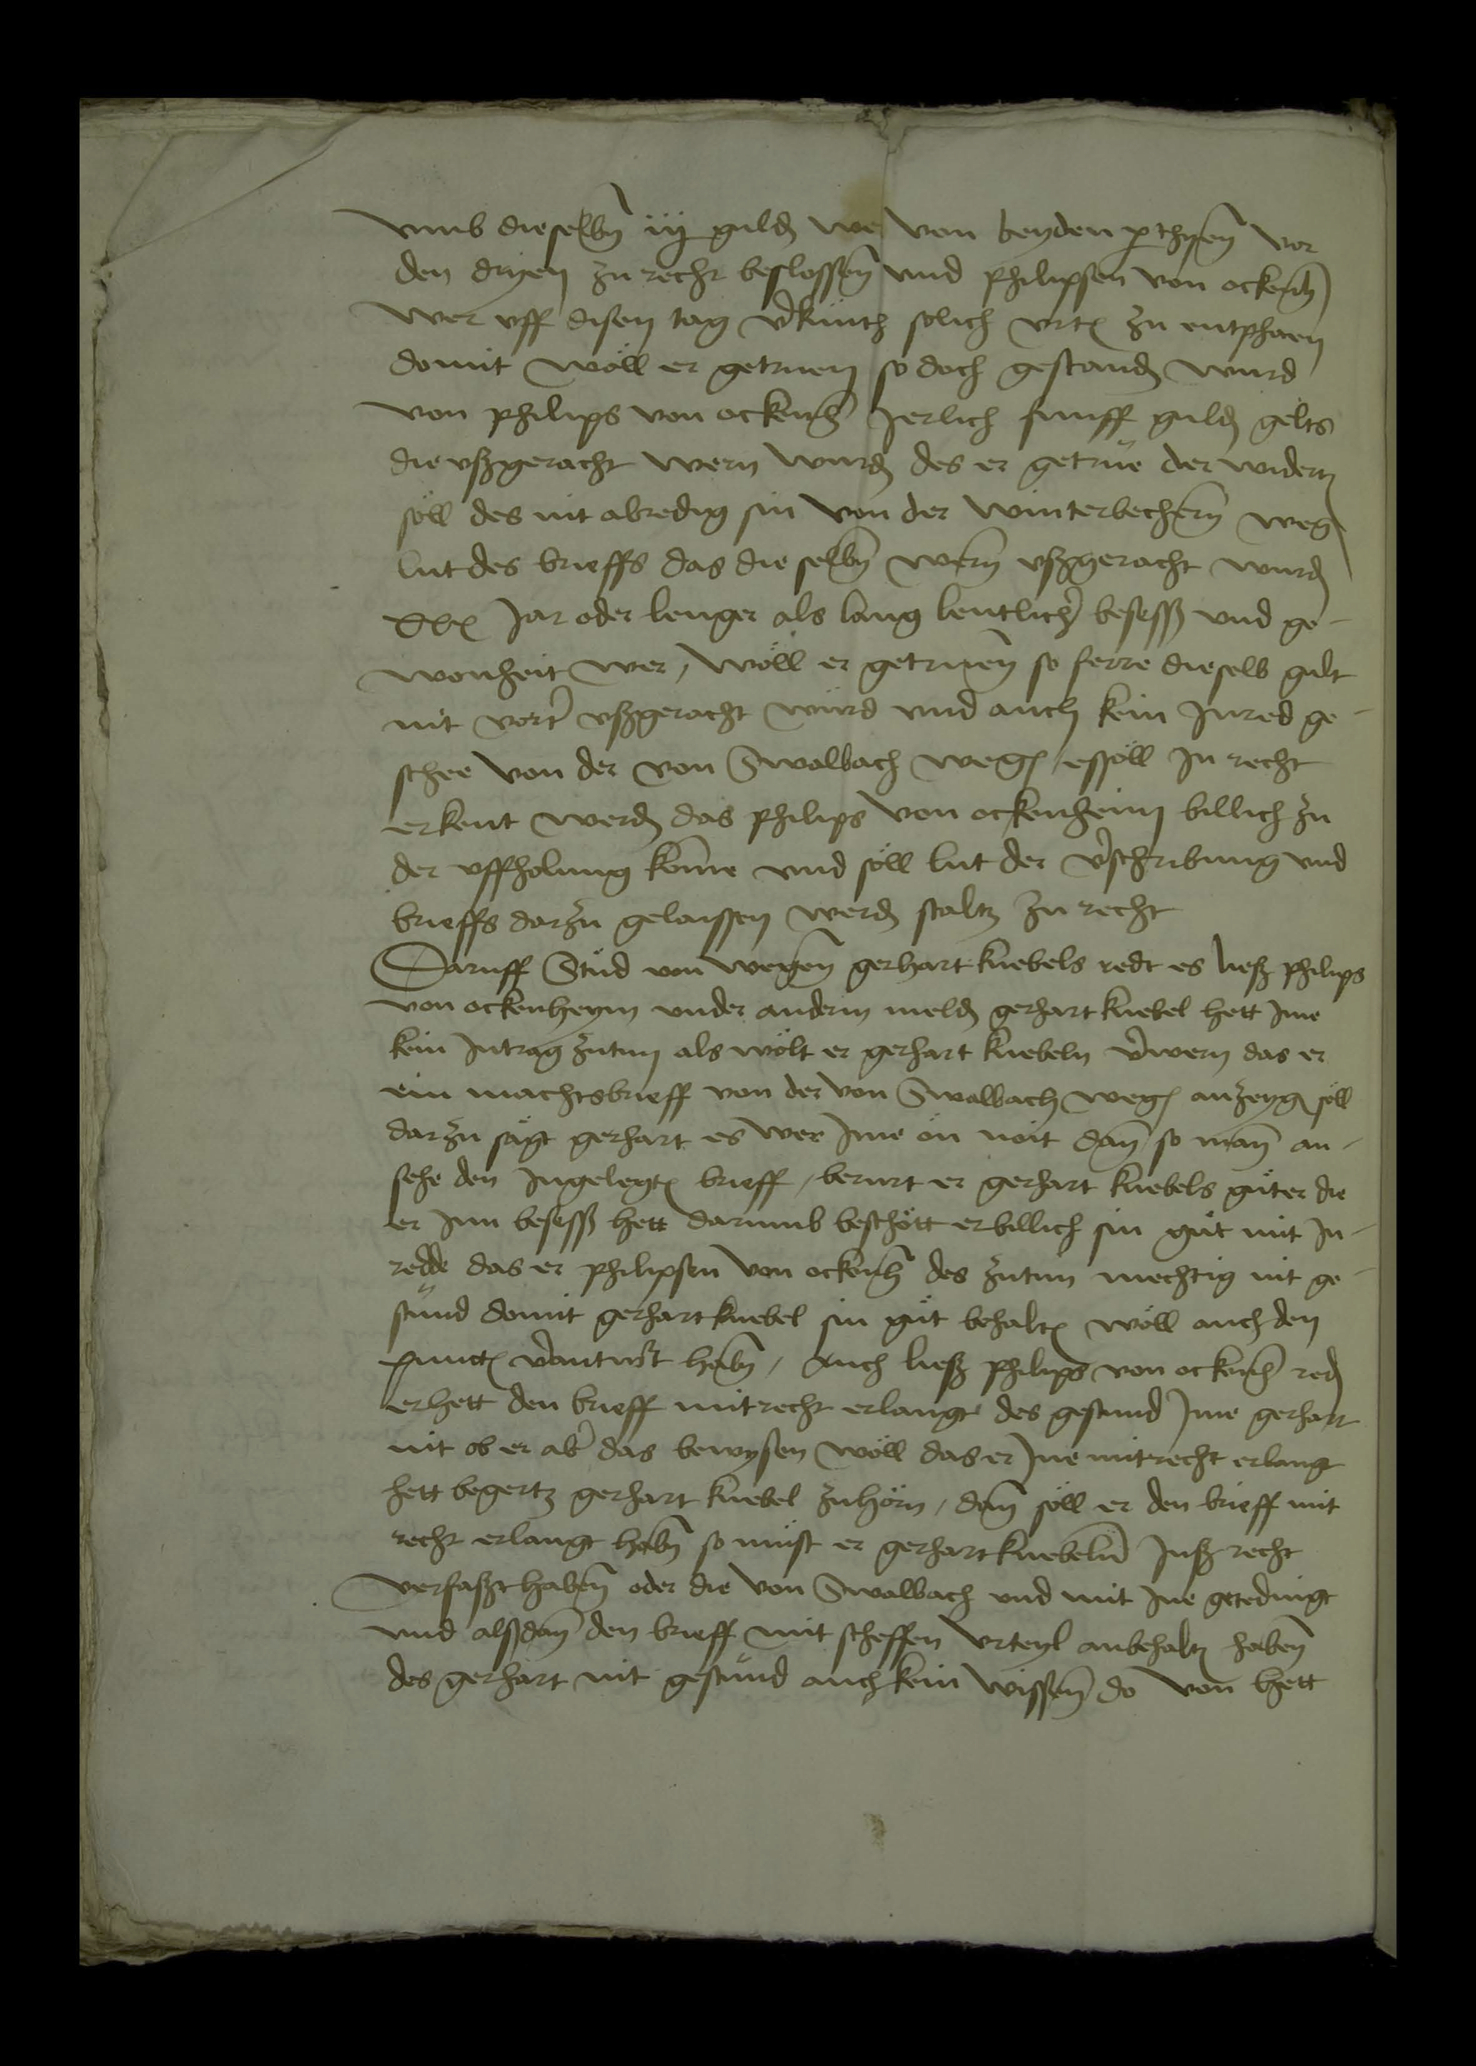 vmb dieselbn̄ iij guld we von beyden pthyen̄ vor
den dryen zu recht beslossen̄ vnd philipsen von ockenh̄
wer vff disen tag v̓kunth solich vrt zu entphaen
domit wöll er getruen so doch gestand wurd
von philips von ockenh̄ Jerlich funff guld gelts
die vßgeracht wern wurd des er getrüe der widert
söll des nit abredig sin von der winterbechern̄ weg
lut des brieffs das die selbn̄ wern̄ vßgeracht wurd
Jar oder lenger als lang lentlich̓ besesß vnd ge-
wonheit wer, wöll er getruen̄ so ferre dieselb gült
nit vort̓ vßgeracht würd vnd auch kein Inred ge-
schee von der von Swalbach weg, es söll In recht
erkent werd das philips von ockenheim billich zu
der vffholung kome vnd söll lut der v̓schribung vnd
brieffs darzu gelaissen werd staltz zu recht
Daruff Stüd von wegen̄ gerhart knebels redt es ließ philips
von ockenheym vnder anderm meld gerhart knebel hett Ime
kein Intrag zutun als wölt er gerhart knebeln v̓wern das er
ein machtsbrieff von der von Swalbach weg anzeyg söll
darzu sägt gerhart es wer Ime ön nöit dan̄ so man̄ an-
sehe den Ingelegt brieff, berurt er gerhart knebels güter die
er Inn besesß hett darumb beschött er billich sin güt mit In-
redde das er philipsen von ockenh̄ des zutun mechtig nit ge-
stünd domit gerhart knebel sin güt behalt wöll auch den
punct v̓antwrt habn̄, Auch ließ philips von ockenh̄ red
er hett den brieff mit recht erlangt des gestund Ime gerhart
nit ob er ab̓ das bewysen wöll das er Ine mit recht erlangt
hett begertz gerhart knebel zuhörn, dan̄ söll er den brieff mit
recht erlangt habn̄ so müst er gerhart knebeln̄ Inß recht
verfaßt haben̄ oder die von Swalbach vnd mit Ine getedingt
vnd alßdan̄ den brieff mit scheffen vrteyl anbehalt haben̄
des gerhart nit gestund auch kein wissen̄ do von hett